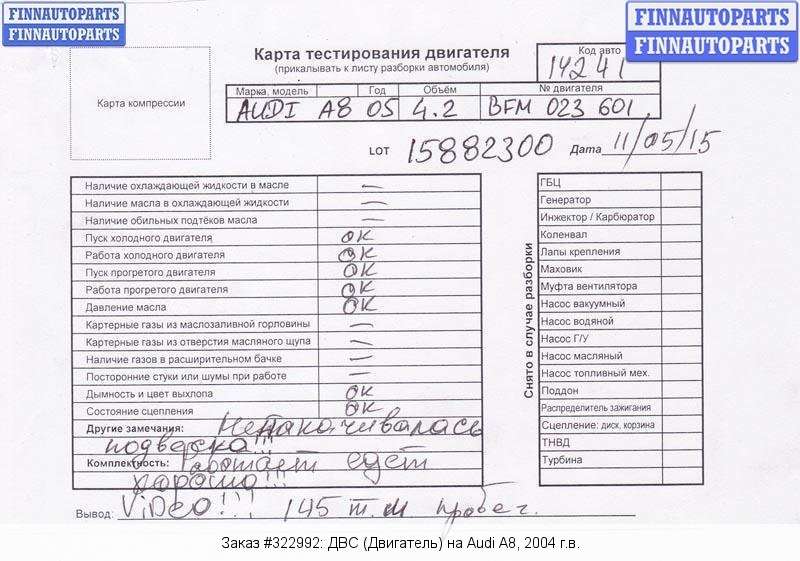 FINNAUTOPARTS
FINNAUTOPARTS
FINNAUTOPARTS
FINNAUTOPARTS
Карта компрессии
Карта тестирования двигателя
(прикалывать к листу разборки автомобиля)
Код авто
14241
Марка, модель Год Объём № двигателя
AUDI A8 05 4.2 BFM 023 601
LOT 15882300 Дата 11/05/15
Наличие охлаждающей жидкости в масле —
Наличие масла в охлаждающей жидкости —
Наличие обильных подтёков масла —
Пуск холодного двигателя ОК
Работа холодного двигателя ОК
Пуск прогретого двигателя ОК
Работа прогретого двигателя ОК
Давление масла ОК
Картерные газы из маслозаливной горловины —
Картерные газы из отверстия масляного щупа —
Наличие газов в расширительном бачке —
Посторонние стуки или шумы при работе —
Дымность и цвет выхлопа ОК
Состояние сцепления ОК
Другие замечания: Не накачивалась
подвеска!!!
Комплектность: Работает едет
хорошо!!!
Вывод: VIDEO!!! 145 т.м пробег.
Снято в случае разборки
ГБЦ
Генератор
Инжектор / Карбюратор
Коленвал
Лапы крепления
Маховик
Муфта вентилятора
Насос вакуумный
Насос водяной
Насос Г/У
Насос масляный
Насос топливный мех.
Поддон
Распределитель зажигания
Сцепление: диск, корзина
ТНВД
Турбина
Заказ #322992: ДВС (Двигатель) на Audi A8, 2004 г.в.